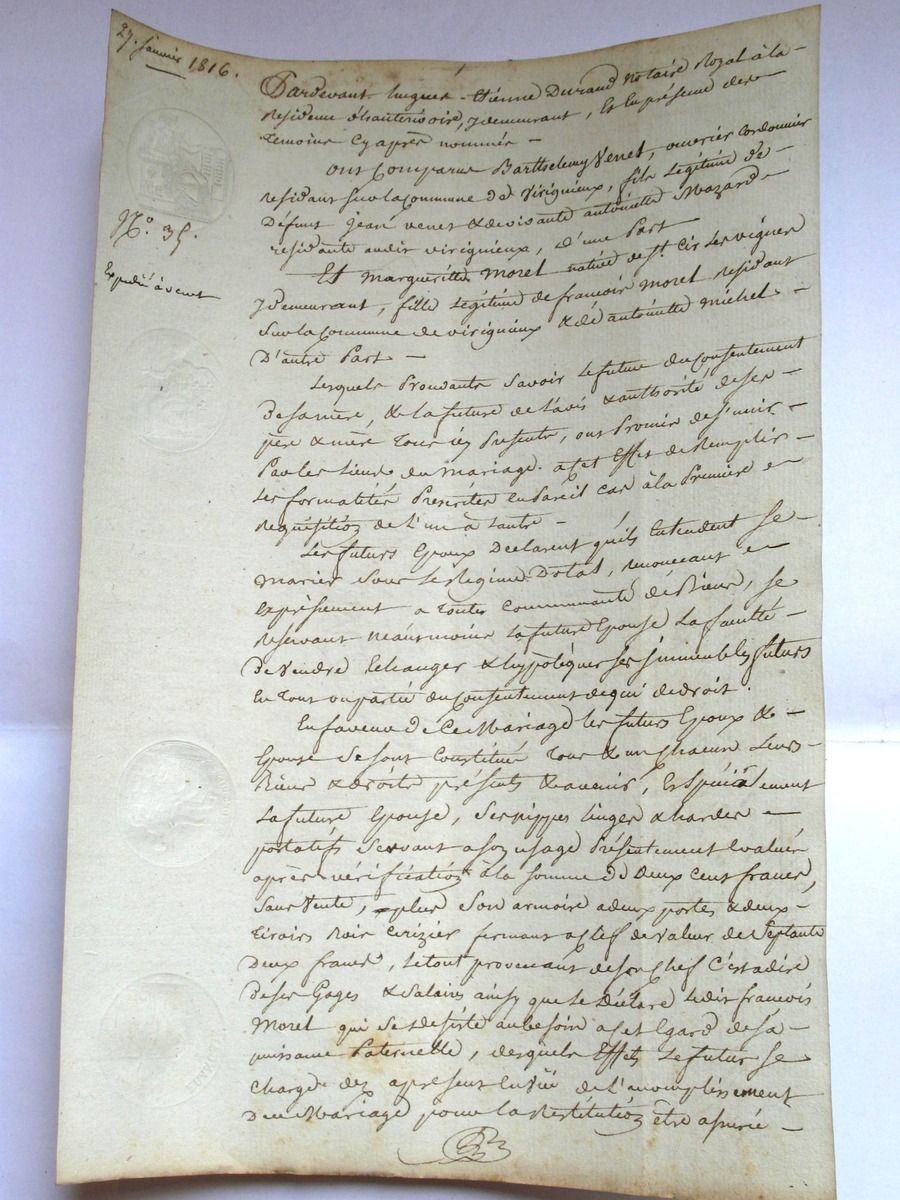 27. Janvier 1816.
Pardevant hugues-Etienne Durand Notaire Royal à la
Residence d'hauterivoire, y demeurant, Et En présence des
temoins Cy après nommés
N.º 35.
Expedié à venet
ont Comparus Barthelemy Venet, ouvrier Cordonnier
residant sur la Commune de Virigneux, fils Légitime de
Défunt jean venet & de vivante antoinette Mazard
residante audit virigneux, d'une Part
Et Margueritte Morel native de St. Cir Les vignes
y demeurant, fille Légitime de francois Morel residant
Sur la Commune de virigneux & de antoinette Michel
D'autre Part
Lesquels Procedants Savoir Le futur du Consentement
de sa mere, & la future de l'avis & authorité de ses
père & mère Tous icy Presents, ont Promis de S'unir
Par les Liens du Mariage. a Cet Effet de Remplir
Les formalités Prescrites En Pareil Cas à la Premiere
requisition de L'un à Lautre
Les futurs Epoux Declarent qu'ils Entendent Se
Marier Sous Le Regime Dotal, renonceant
Expressement a toutes Communauté de Biens, Se
reservant néausmoins La future Epouse La faculté
de Vendre Echanger & hypotequer Ses immeubles futurs
En Tout ou partie du Consentement de qui de droit.
En faveur de Ce Mariage les futurs Epoux &
Epouse Se sont Constitués Tous & un Chacun Leurs
Biens & droits présents & avenir, Et Spécialement
La future Epouse, Ses nippes linges & hardes
portatifs Servant a son usage Présentement Evalués
après vérification à la somme de Deux Cent francs,
Sans Vente, plus Son armoire a deux portes & deux
Tiroirs Bois Cerizier fermant a Clef de valeur de Septante
Deux francs, Le tout provenant de son Chef C'est adire
de ses Gages & Salaires ainsy que Le déclare Ledit francois
Morel qui Se desiste au besoin a Cet Egard de sa
puissance Paternelle, desquels Effets Le futur Se
Charge dez apresent En Vüe de L'accomplissement
Du Mariage pour La Restitution être assurée